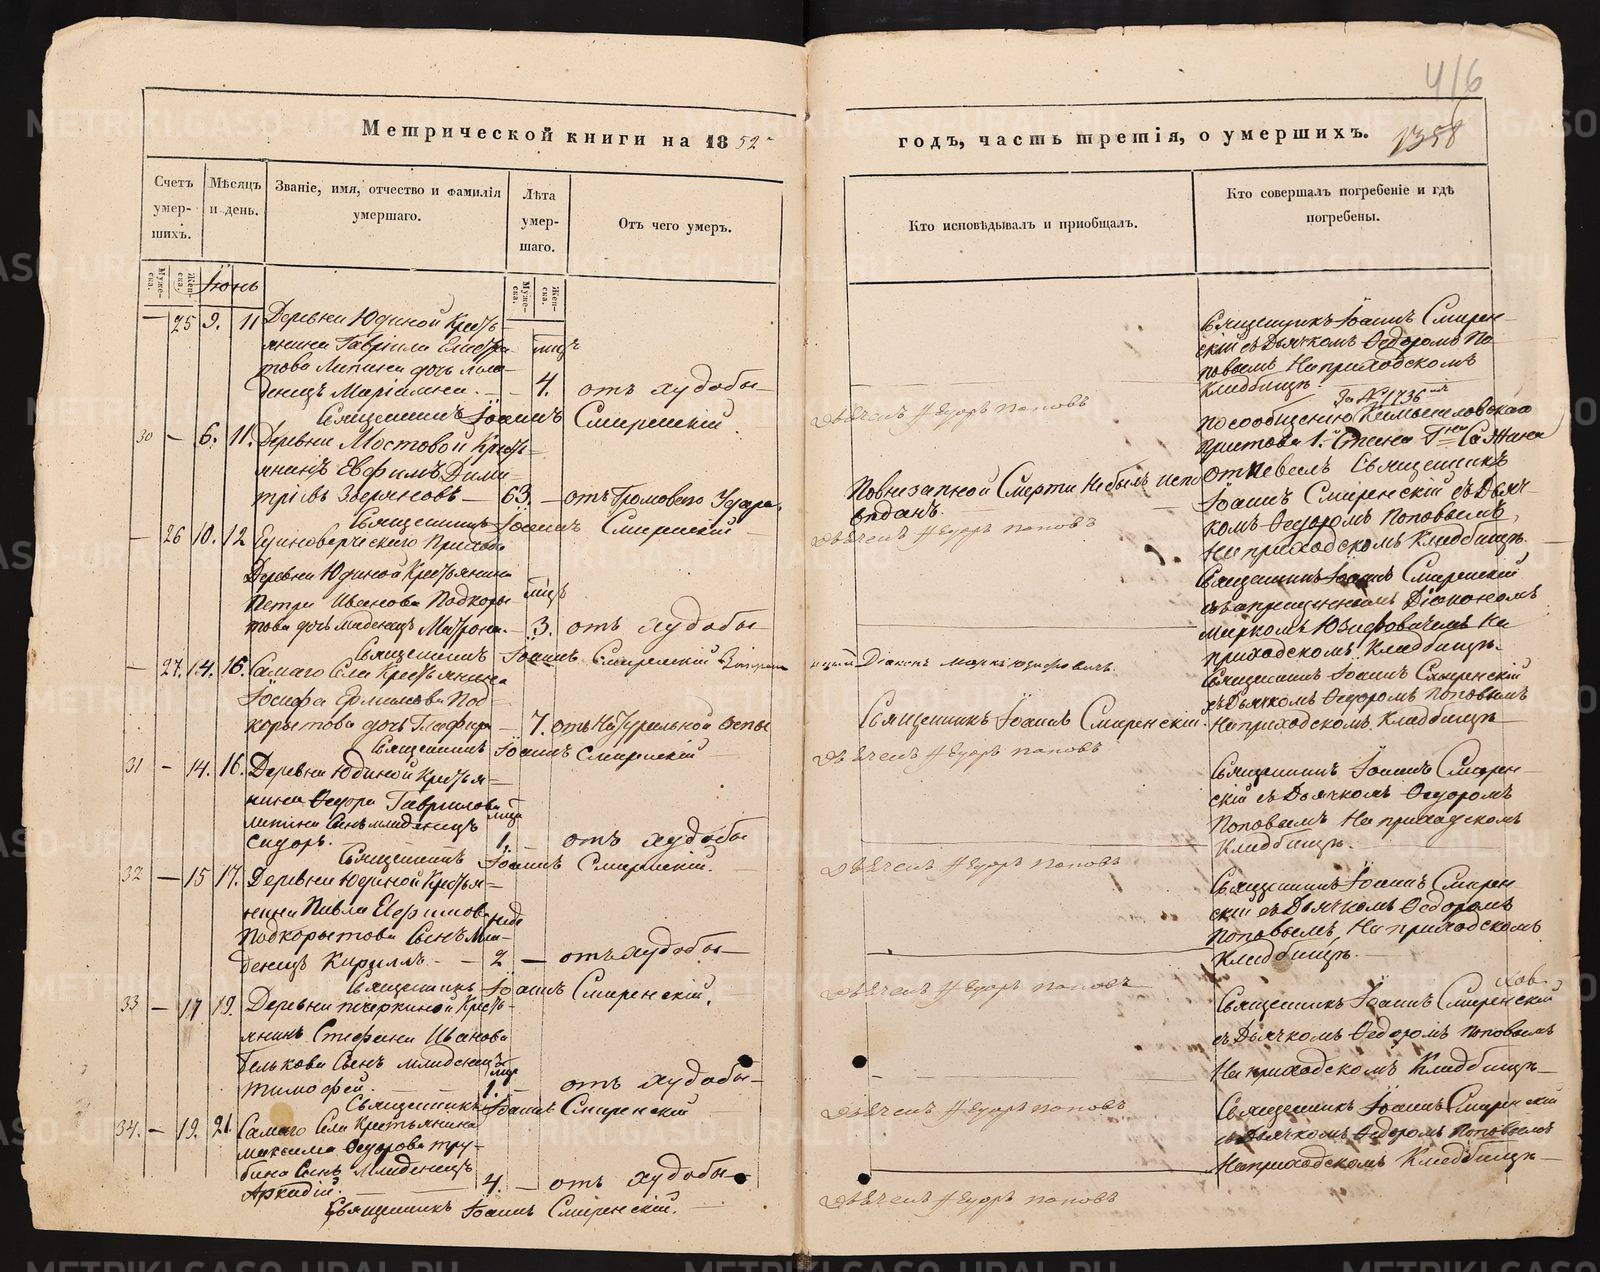 416
Метрической книги на 1852
годъ, часть третія, о умершихъ.
1358
Счетъ умер-шихъ.
Мѣсяцъ и день.
Званіе, имя, отчество и фамилія умершаго.
Лѣта умер-шаго.
Отъ чего умеръ.
Кто исповѣдывалъ и приобщалъ.
Кто совершалъ погребеніе и гдѣ погребены.
Муже-ска.
Жен-ска.
Іюнь
Муже-ска.
Жен-ска.
25 9. 11 Деревни Юдиной Кресть-
янина Гавріила
това Липина дочь мла-
денецъ Маріамна. 4. отъ худобы
Священникъ Іоаннъ Смиренскій
Священникъ Іоаннъ Смирен-
скій съ Дьячкомъ Ѳедоромъ По-
повымъ На приходскомъ
Кладбищѣ.
Дьячекъ Ѳедоръ Поповъ
30 — 6. 11. Деревни Мостовой Кресть-
янинъ Евфимъ Дими-
тріевъ Зверяновъ — 63. — отъ Громоваго Удара.
Священникъ Іоаннъ Смиренскій
По внезапной Смерти Не былъ испо
вѣданъ.
За № 1736
По сообщенію Камышловскаго
Пристава 1. Стана Гна Сажина
отпевалъ Священникъ
Іоаннъ Смиренскій съ Дьяч-
комъ Ѳедоромъ Поповымъ,
На приходскомъ Кладбищѣ.
Дьячекъ Ѳедоръ Поповъ
— 26 10. 12 Единоверческаго Прихода
Деревни Юдиной Крестьянина
Петра Иванова Подкоры-
това дочь младенецъ Матрона. — 3. отъ худобы
Священникъ Іоаннъ Смиренскій
Діаконъ
Священникъ Іоаннъ Смиренскій
Діакономъ
На
приходскомъ Кладбищѣ.
— 27. 14. 16. Самаго Села Крестьянина
Іосифа Ермилова Под-
корытова дочь Глафира — 7. отъ Натуральной оспы
Священникъ Іоаннъ Смиренскій
Священникъ Іоаннъ Смиренскій.
Священникъ Іоаннъ Смиренскій
съ Дьячкомъ Ѳедоромъ Поповымъ
На приходскомъ Кладбищѣ
Дьячекъ Ѳедоръ Поповъ
31 — 14. 16. Деревни Юдиной Кресть-
янина Ѳедора Гаврилова
Липина Сынъ младенецъ
Сидоръ. 1. отъ худобы
Священникъ Іоаннъ Смиренскій.
Священникъ Іоаннъ Смирен-
скій съ Дьячкомъ Ѳедоромъ
Поповымъ На приходскомъ
Кладбищѣ.
Дьячекъ Ѳедоръ Поповъ
32 — 15 17. Деревни Юдиной Кресть-
янина Павла Евфимова
Подкорытова Сынъ Мла-
денецъ Кириллъ — 2 — отъ худобы
Священникъ Іоаннъ Смиренскій.
Священникъ Іоаннъ Смирен
скій съ Дьячкомъ Ѳедоромъ
Поповымъ На приходскомъ
Кладбищѣ.
Дьячекъ Ѳедоръ Поповъ
33 — 17 19. Деревни Кресть-
янина Стефана Иванова
Белькова Сынъ младенецъ
Тимофей. 1. — отъ худобы
Священникъ Іоаннъ Смиренскій
Священникъ Іоаннъ Смиренскій
съ Дьячкомъ Ѳедоромъ Поповымъ
На приходскомъ Кладбищѣ
Дьячекъ Ѳедоръ Поповъ
34. — 19. 21. Самаго Села Крестьянина
Максима Ѳедорова Тру-
бина Сынъ младенецъ
Аркадій. 4 — отъ худобы
Священникъ Іоаннъ Смиренскій.
Священникъ Іоаннъ Смиренскій
съ Дьячкомъ Ѳедоромъ Поповымъ
На приходскомъ Кладбищѣ
Дьячекъ Ѳедоръ Поповъ
METRIKI.GASO-URAL.RU